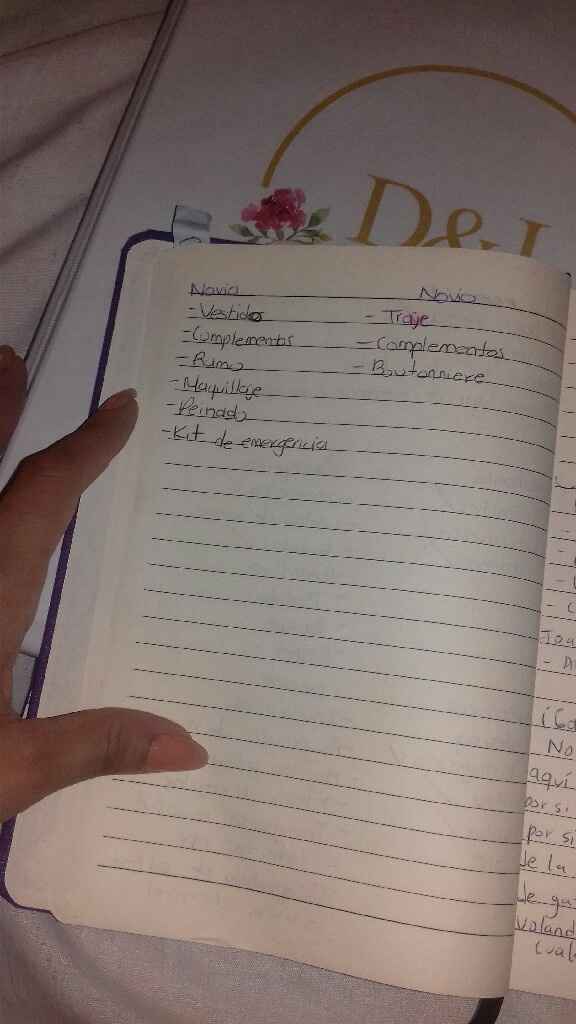 D&
Novia
- Vestido
- Complementos
- Ramo
- Maquillaje
- Peinado
- Kit de emergencia
Novio
- Traje
- Complementos
- Boutonniere
No
aquí
por si
por si
de la